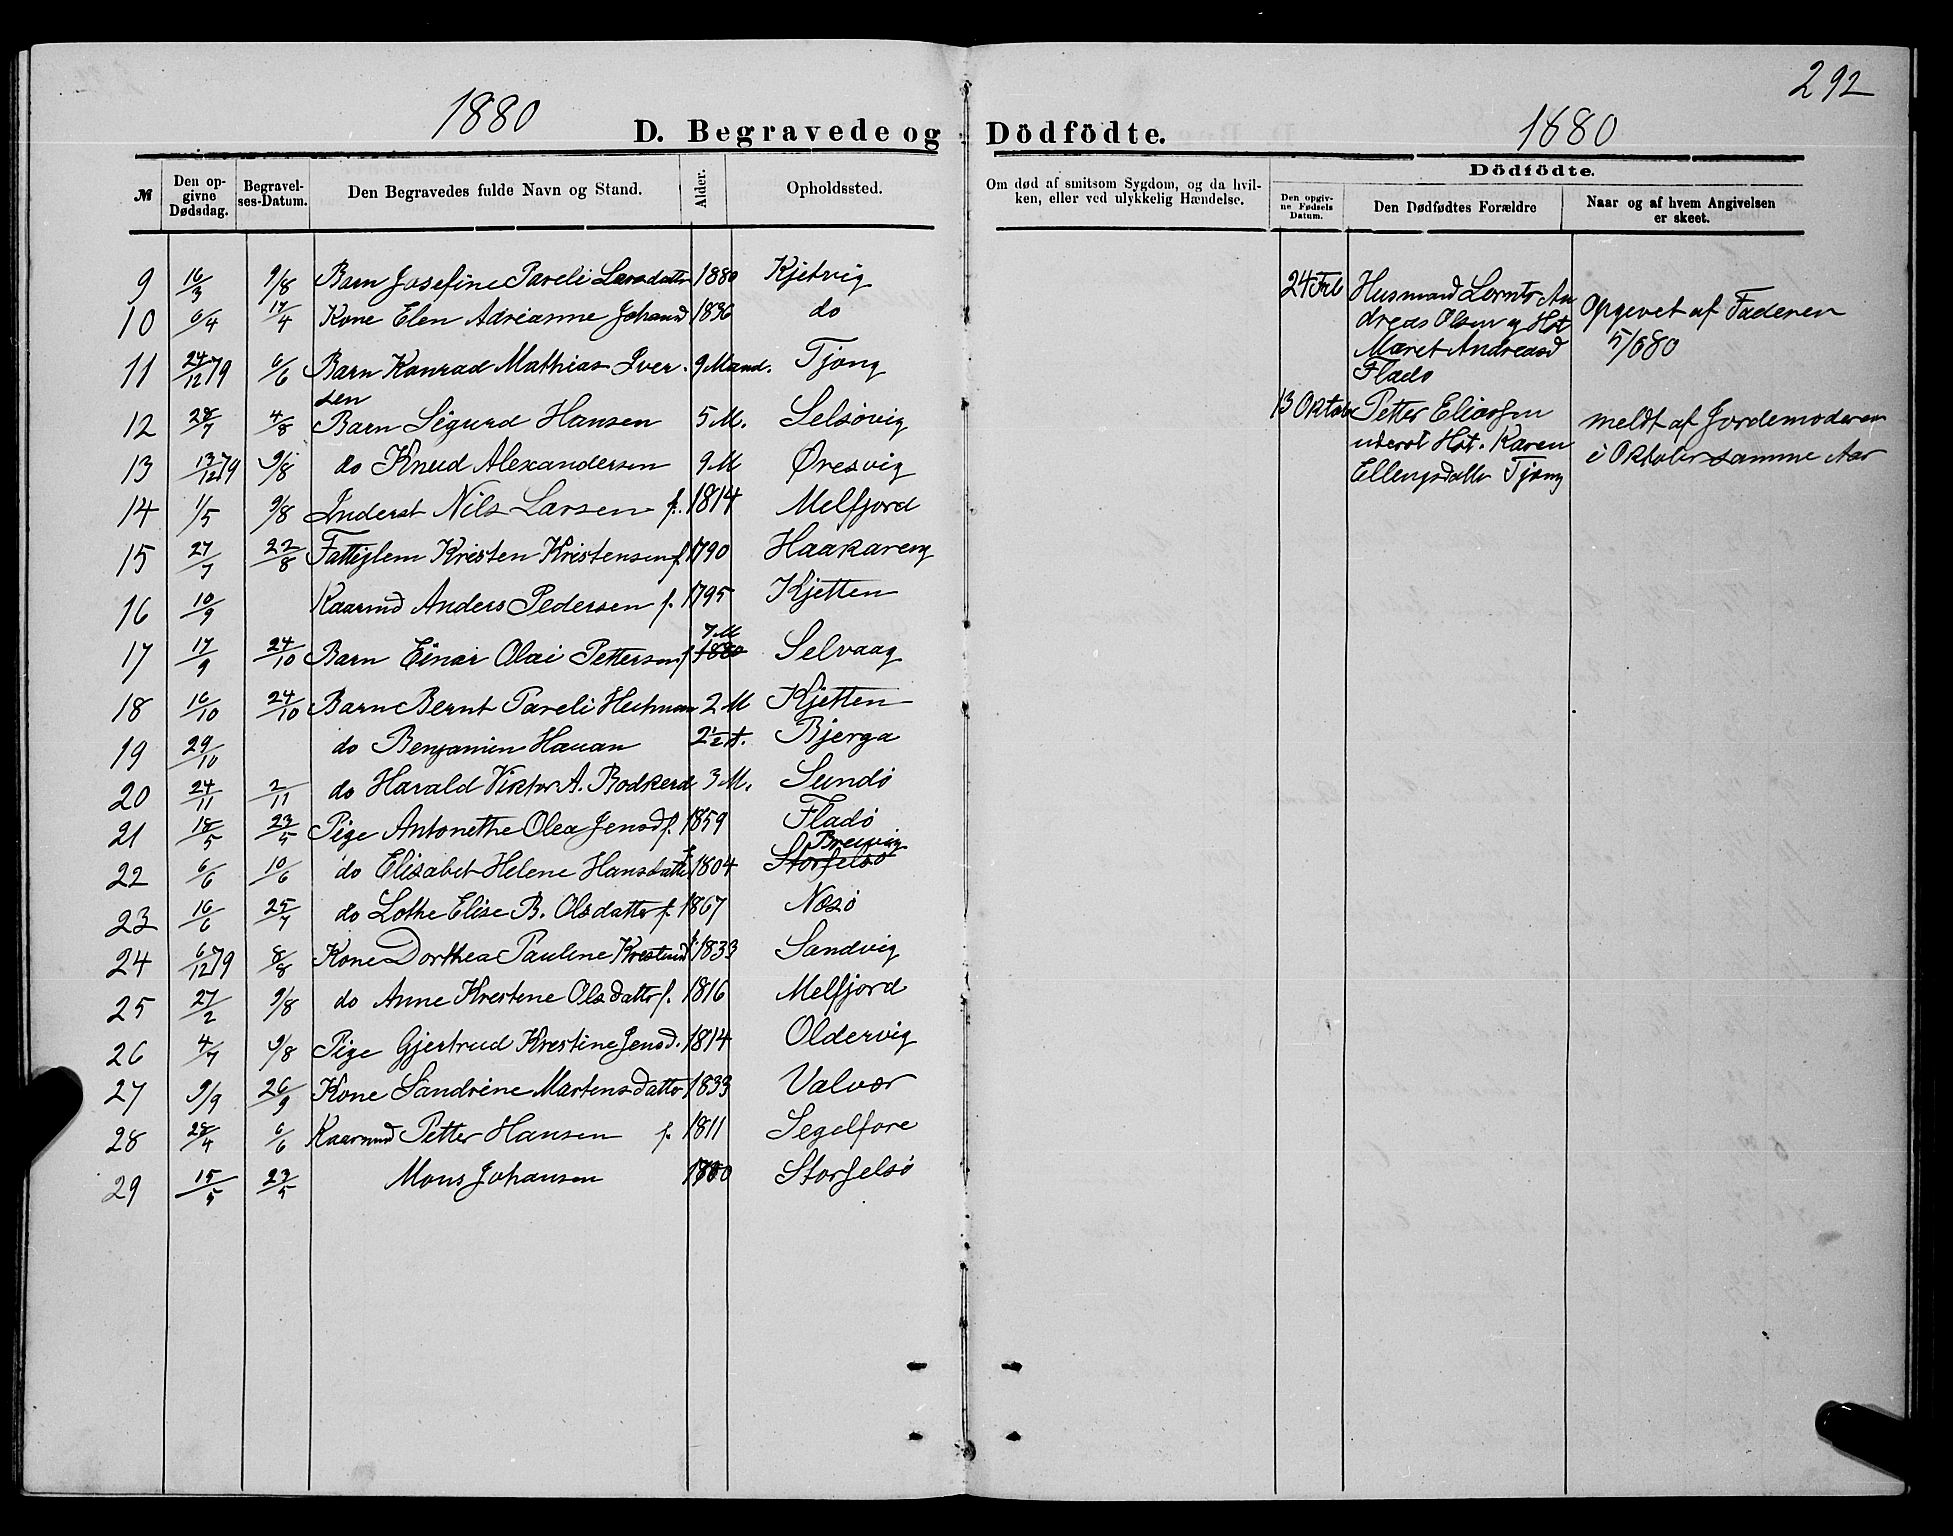 292
1880
D. Begravede og Dödfödte.
1880
№
Den opgivne Dødsdag.
Begravelses-Datum.
Den Begravedes fulde Navn og Stand.
Alder.
Opholdssted.
Om død af smitsom Sygdom, og da hvilken, eller ved ulykkelig Hændelse.
Dödfödte.
Den opgivne Fødsels Datum.
Den Dødfødtes Forældre
Naar og af hvem Angivelsen er skeet.
9 16/3 9/8 Barn Josefine Pareli Larsdatter 1880 Kjetvig
10 6/4 17/4 Kone Elen Adrianne Johansd 1836 do
11 24/12 79 6/6 Barn Konrad Mathias Iver- 9 Maand. Tjong
sen
12 28/7 4/8 Barn Sigurd Hansen 5 M. Selsøvig
13 13/12 79 9/8 do Knud Alexandersen 9 M Øresvig
14 1/5 9/8 Inderst Nils Larsen f. 1814 Melfjord
15 27/7 22/8 Fattiglem Kristen Kristensen f 1790 Haakareng
16 10/9 Kaarmd Anders Pedersen f. 1795 Kjetten
7 M
17 17/9 24/10 Barn Einar Olai Pettersen f 1880 Selvaag
18 16/10 24/10 Barn Bernt Pareli Heitman 2 M Kjetten
19 29/10 do Benjamin Hauan 2½ A. Bjerga
20 24/11 2/11 do Harald Viktor A. Bodkerd 3 M. Sundø
21 18/5 23/5 Pige Antonethe Olea Jensd f. 1859 Fladø
Breivig
22 6/6 10/6 do Elisabet Helene Hansdatter f 1804 Storselsø
23 16/6 25/7 do Lothe Elise B. Olsdatter f. 1867 Nesø
24 6/12 79 8/8 Kone Dorthea Pauline Krestensd f. 1833 Sandvig
25 27/2 9/8 do Anne Krestene Olsdatter f. 1816 Melfjord
26 4/7 9/8 Pige Gjertrud Krestine Jensd. 1814 Oldervig
27 9/9 26/9 Kone Sandrine Martensdatter 1833 Valvær
28 28/4 6/6 Kaarmd Petter Hansen f. 1811 Segelfore
29 15/5 23/5 Mons Johansen 1800 Storselsø
24 Feb Husmand Lornts An
dreas Olsen og Hst
Maret Andreasd
Fladø
Opgevet af Faderen
5/6 80
13 Oktob Petter Eliassen
uderst Hst. Karen
Ellengsdatter Tjong
meldt af Jordemoderen
i Oktober samme Aar